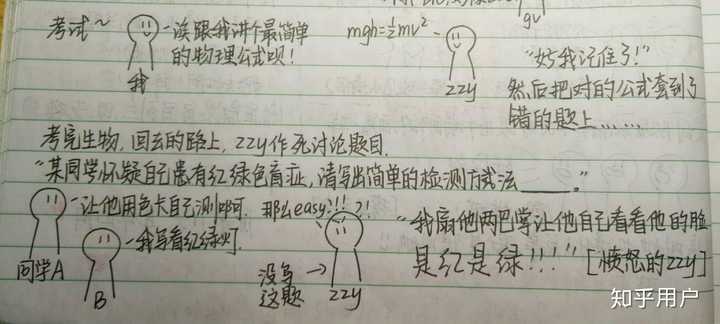 gv
考试~
-诶跟我讲个最简单
的物理公式呗!
我
mgh=½mv²-
zzy
"好我记住了!"
然后把对的公式套到了
错的题上……
考完生物,回去的路上,zzy作死讨论题目.
"某同学怀疑自己患有红绿色盲症,请写出简单的检测方法____。"
-让他用色卡自己测啊 那么easy?!!?!
同学A
-我写看红绿灯.
B
没写
这题
zzy
"我扇他两巴掌让他自己看看他的脸
是红是绿!!!"[愤怒的zzy]
知乎用户